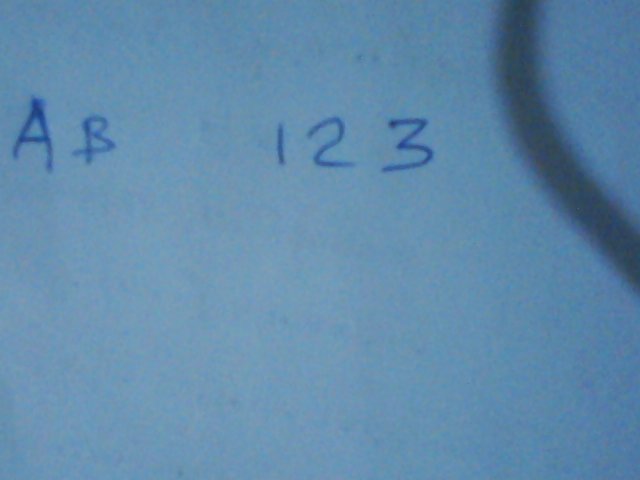 AB 123